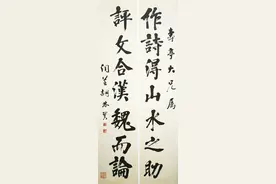 壽亭大兄屬
作詩得山水之助
評文合漢魏而論